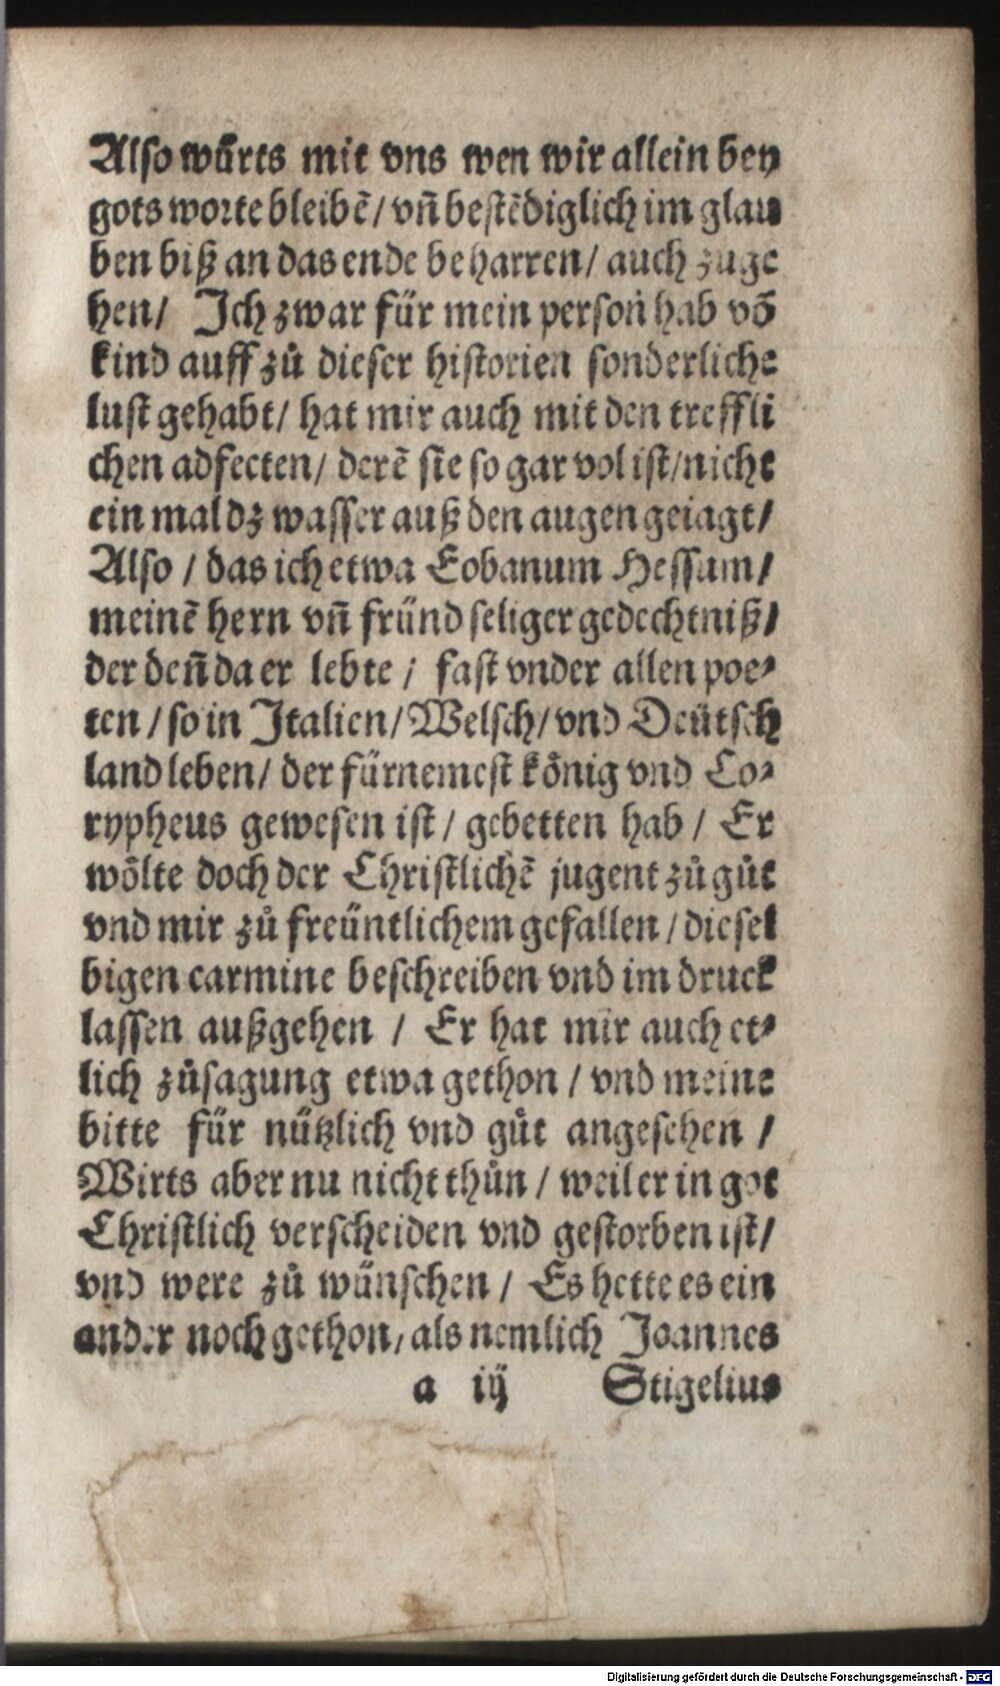 Also wuͤrts mit vns wen wir allein bey
gots worte bleibẽ/ vñ bestẽdiglich im glau
ben biß an das ende beharren/ auch zuge
hen/ Ich zwar fuͤr mein person hab võ
kind auff zuͦ dieser historien sonderliche
lust gehabt/ hat mir auch mit den treffli
chen adfecten/ derẽ sie so gar vol ist/ nicht
ein mal dz wasser auß den augen geiagt/
Also / das ich etwa Eobanum Hessum/
meinẽ hern vñ fruͤnd seliger gedechtniß/
der deñ da er lebte / fast vnder allen poe⸗
ten / so in Italien/ Welsch/ vnd Deuͤtsch
land leben/ der fuͤrnemest koͤnig vnd Co⸗
rypheus gewesen ist/ gebetten hab / Er
woͤlte doch der Christlichẽ jugent zuͦ guͦt
vnd mir zuͦ freuͤntlichem gefallen / diesel
bigen carmine beschreiben vnd im druck
lassen außgehen / Er hat mir auch et⸗
lich zuͦsagung etwa gethon / vnd meine
bitte fuͤr nuͤtzlich vnd guͦt angesehen /
Wirts aber nu nicht thuͦn / weil er in got
Christlich verscheiden vnd gestorben ist/
vnd were zuͦ wuͤnschen / Es hette es ein
ander noch gethon/ als nemlich Joannes
a iij Stigelius
Digitalisierung gefördert durch die Deutsche Forschungsgemeinschaft - DFG